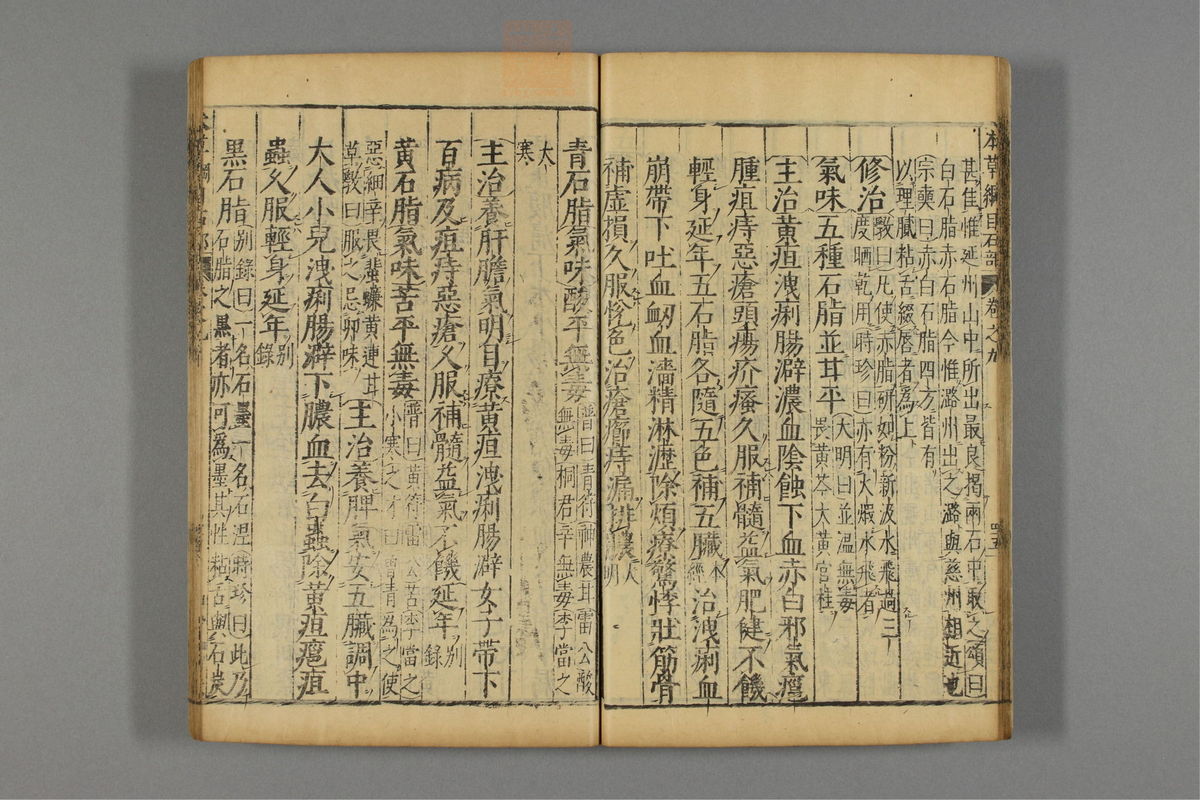 本草綱目石部 卷之九
甚佳惟延州山中所出最良揭兩石中取之頌曰
白石脂赤石脂今惟潞州出之潞與慈州相近也
宗奭曰赤白石脂四方皆有
以理膩粘舌綴唇者為上
修治斅曰凡使赤脂研如粉新汲水飛過三
度晒乾用時珍曰亦有火煅水飛者
氣味五種石脂並甘平大明曰並溫無毒
畏黃芩大黃官桂
主治黃疸洩痢腸澼膿血陰蝕下血赤白邪氣癰
腫疽痔惡瘡頭瘍疥瘙久服補髓益氣肥健不饑
輕身延年五石脂各隨五色補五臟本經治洩痢血
崩帶下吐血衂血濇精淋瀝除煩療驚悸壯筋骨
補虛損久服悅色治瘡癤痔漏排膿大明
青石脂氣味酸平無毒普曰青符神農甘雷公酸
無毒桐君辛無毒李當之
大
寒
主治養肝膽氣明目療黃疸洩痢腸澼女子帶下
百病及疽痔惡瘡久服補髓益氣不饑延年別錄
黃石脂氣味苦平無毒普曰黃符雷公苦李當之
小寒之才曰曾青為之使
惡細辛畏蜚蠊黃連甘
草斅曰服之忌卵味主治養脾氣安五臟調中
大人小兒洩痢腸澼下膿血去白蟲除黃疸癰疽
蟲久服輕身延年別錄
黑石脂別錄曰一名石墨一名石涅時珍曰此乃
石脂之黑者亦可為墨其性粘舌與石炭